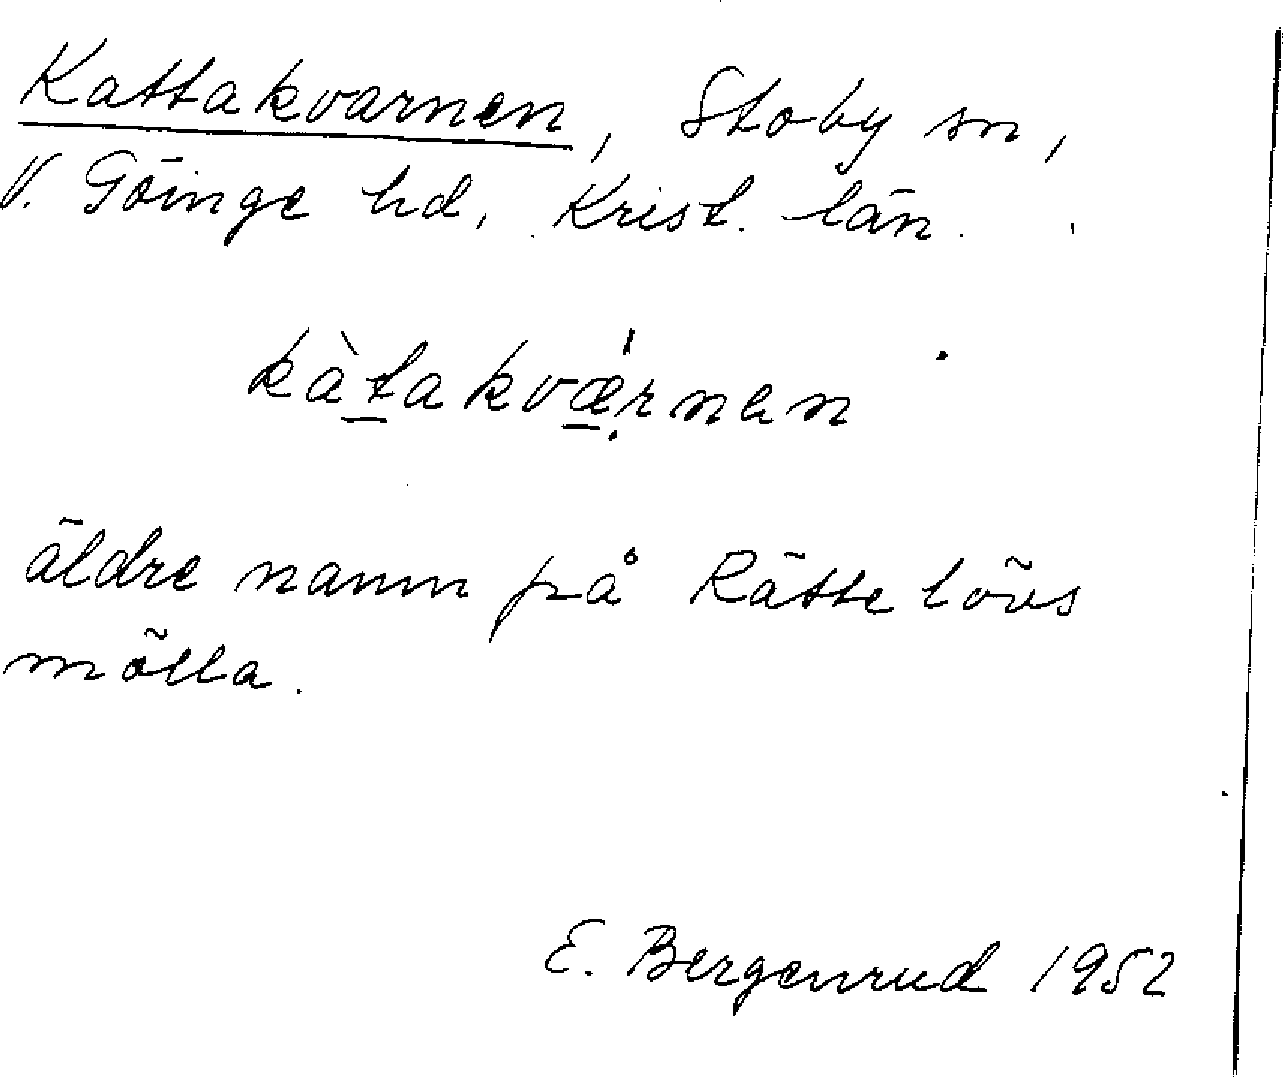 Kattakvarnen, Stoby sn,
V. Göinge hd. Krist. län.
kàt̲akvǽ̲rnen
äldre namn på Rättelövs
mölla.
E. Bergenrud 1952